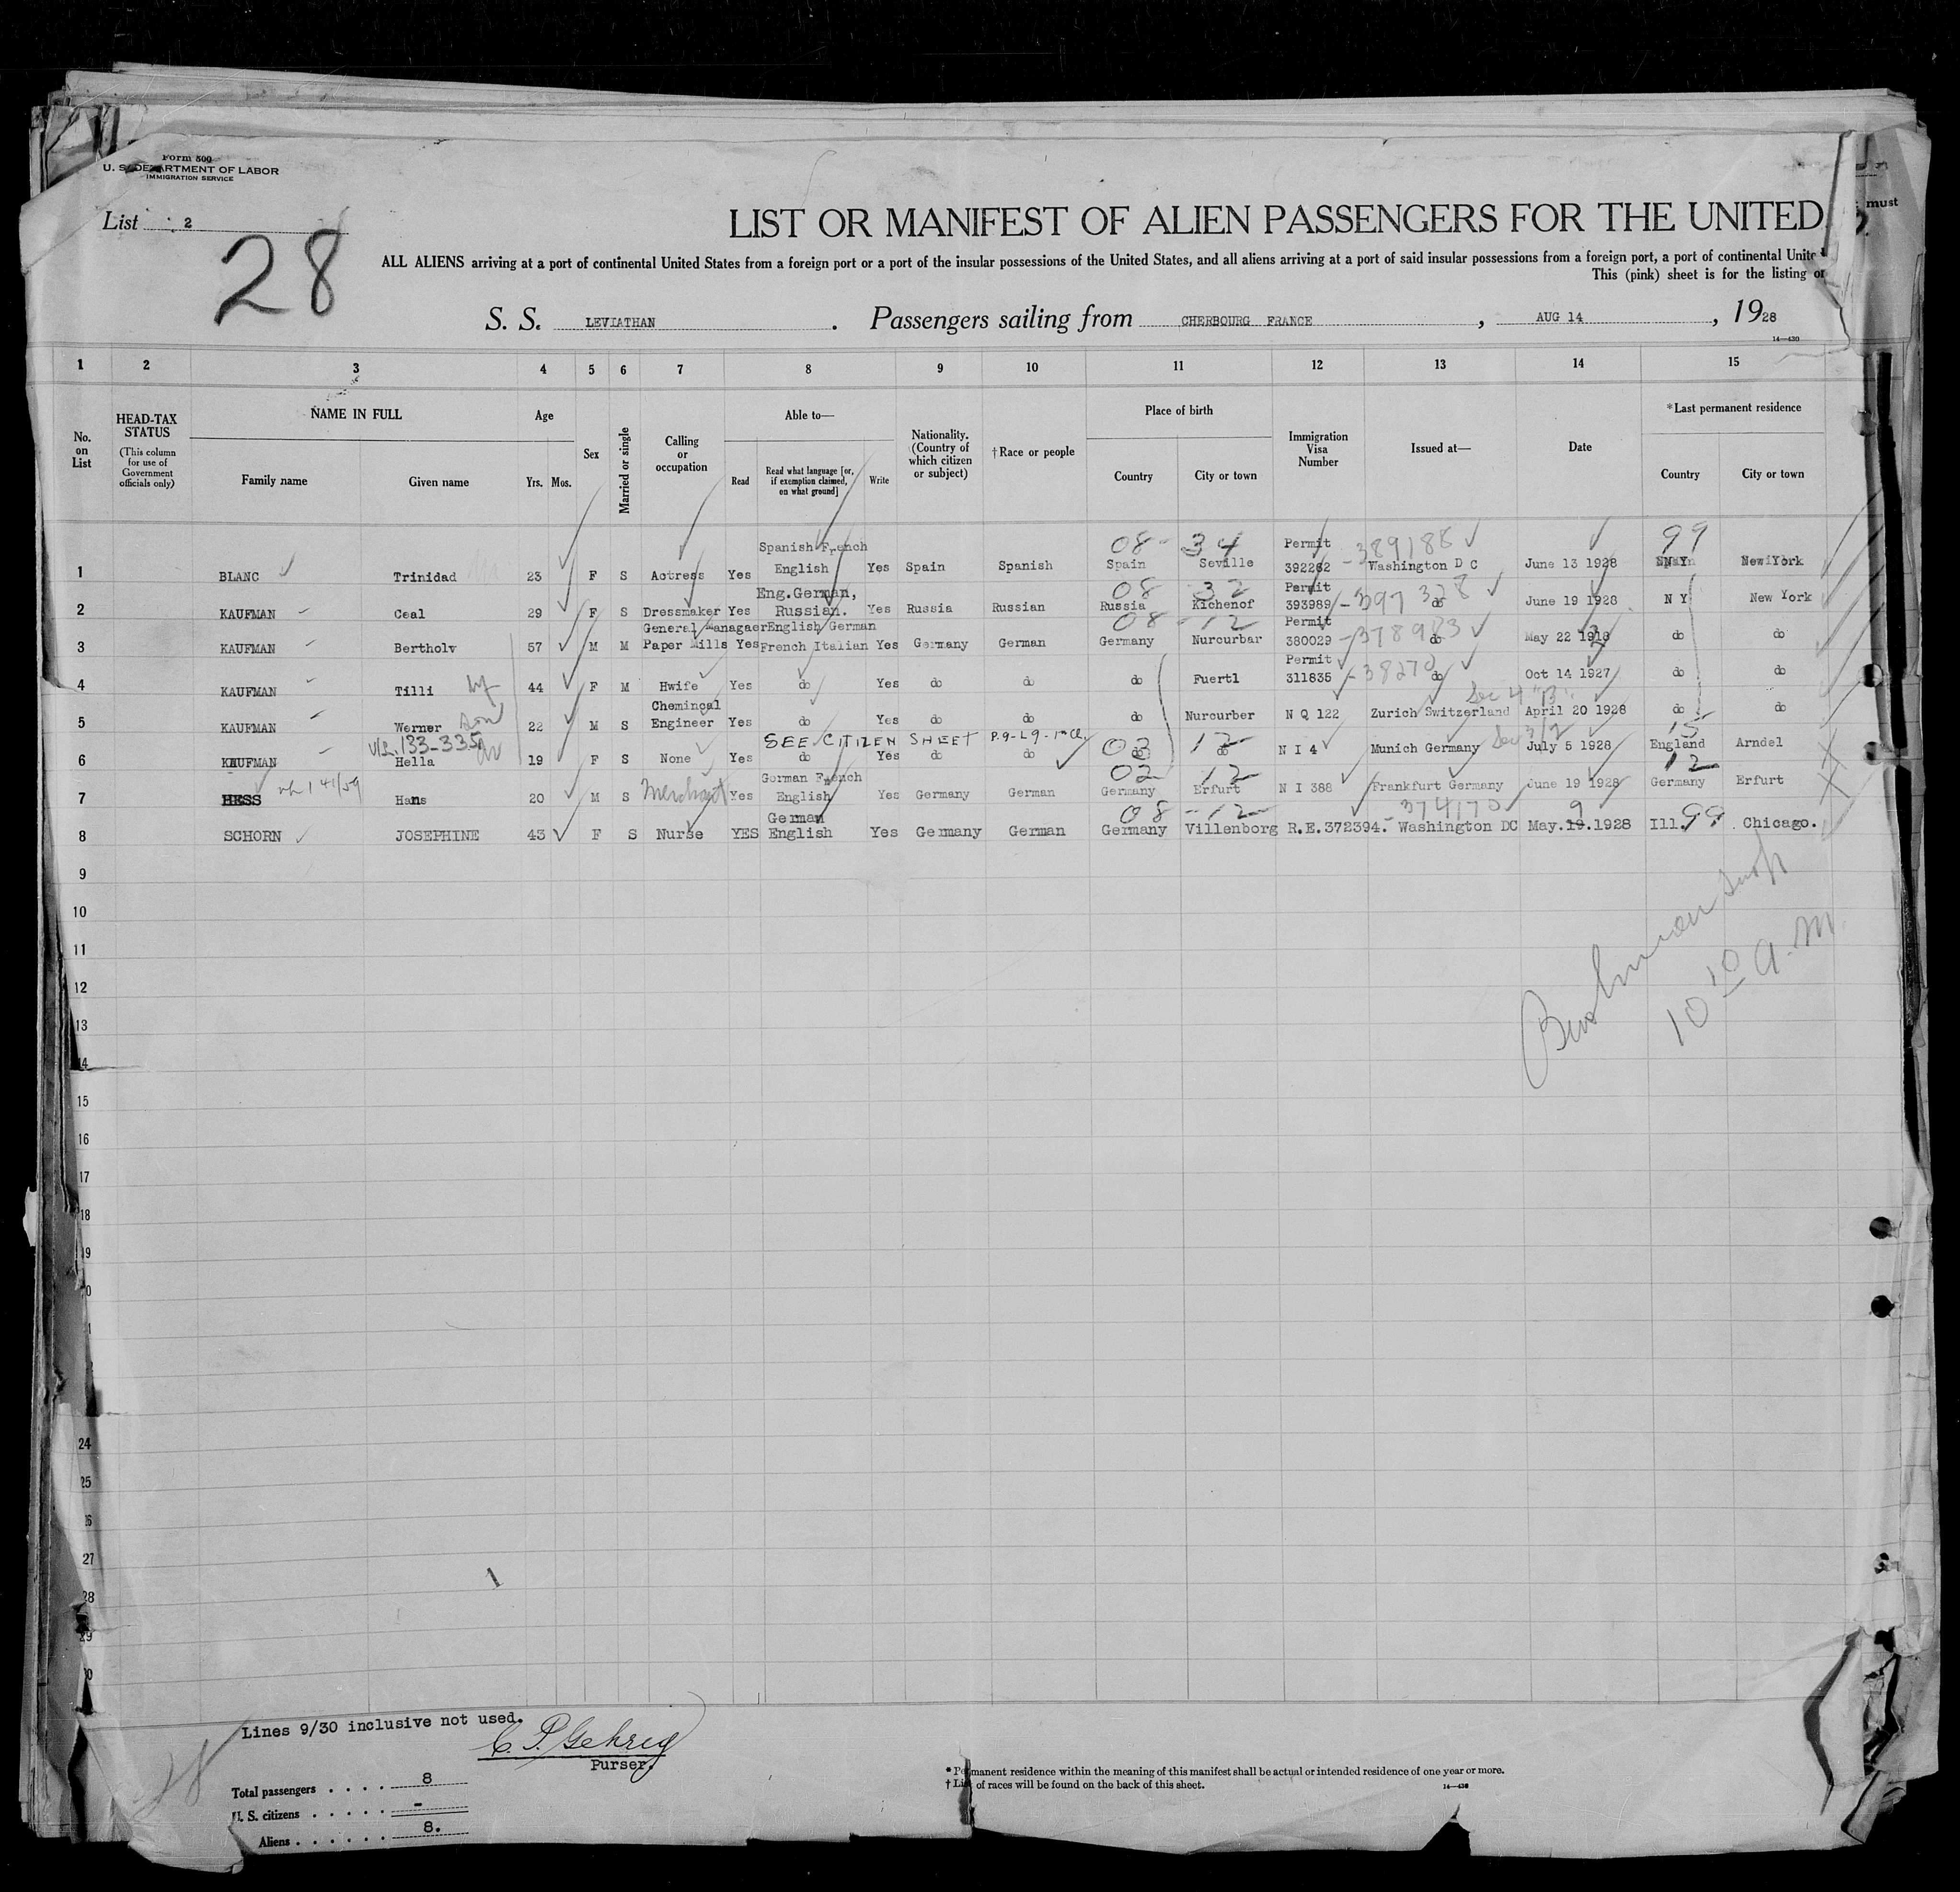 Form 500
U. S. DEPARTMENT OF LABOR
IMMIGRATION SERVICE
List 2
28
LIST OR MANIFEST OF ALIEN PASSENGERS FOR THE UNITED
must
ALL ALIENS arriving at a port of continental United States from a foreign port or a port of the insular possessions of the United States, and all aliens arriving at a port of said insular possessions from a foreign port, a port of continental United
This (pink) sheet is for the listing of
S. S. LEVIATHAN . Passengers sailing from CHERBOURG FRANCE , AUG 14 , 1928
14—430
1 2 3 4 5 6 7 8 9 10 11 12 13 14 15
No. on List
HEAD-TAX STATUS (This column for use of Government officials only)
NAME IN FULL Family name Given name
Age Yrs. Mos.
Sex
Married or single
Calling or occupation
Able to— Read Read what language [or, if exemption claimed, on what ground] Write
Nationality. (Country of which citizen or subject)
†Race or people
Place of birth Country City or town
Immigration Visa Number
Issued at—
Date
*Last permanent residence Country City or town
Spanish French 08 - 34 Permit -389188 99
1 BLANC Trinidad 23 F S Actress Yes English Yes Spain Spanish Spain Seville 392262 Washington D C June 13 1928 N Y New York
Eng.German, 08 32 Permit
2 KAUFMAN Ceal 29 F S Dressmaker Yes Russian. Yes Russia Russian Russia Kichenof 393989 -397328 do June 19 1928 N Y New York
General Managaer English German 08 - 12 Permit
3 KAUFMAN Bertholv 57 M M Paper Mills Yes French Italian Yes Germany German Germany Nurcurbar 380029 -378983 do May 22 1918 do do
Permit
4 KAUFMAN Tilli wf 44 F M Hwife Yes do Yes do do do Fuertl 311835 -38270 do Oct 14 1927 do do
Chemincal Sec 4 "B"
5 KAUFMAN Werner son 22 M S Engineer Yes do Yes do do do Nurcurber N Q 122 Zurich Switzerland April 20 1928 do do
133-335 SEE CITIZEN SHEET P.9-L9-1st Cl. 03 12 15
6 KAUFMAN Hella 19 F S None Yes do Yes do do do do N I 4 Munich Germany July 5 1928 England Arndel
141/59 German French 02 12 12
7 HESS Hans 20 M S Merchant Yes English Yes Germany German Germany Erfurt N I 388 Frankfurt Germany June 19 1928 Germany Erfurt
German 08 - 12 -374170 9
8 SCHORN JOSEPHINE 43 F S Nurse YES English Yes Germany German Germany Villenborg R.E.372394. Washington DC May.19.1928 Ill. 99 Chicago.
9
10
11
12
13
14
15
16
17
18
19
20
24
25
26
27
28
29
30
10 10 A.M
Lines 9/30 inclusive not used.
C. P. Gehrig
Purser.
28
Total passengers . . . . 8
U. S. citizens . . . . . -
Aliens . . . . . . 8.
* Permanent residence within the meaning of this manifest shall be actual or intended residence of one year or more.
† List of races will be found on the back of this sheet.
14—430